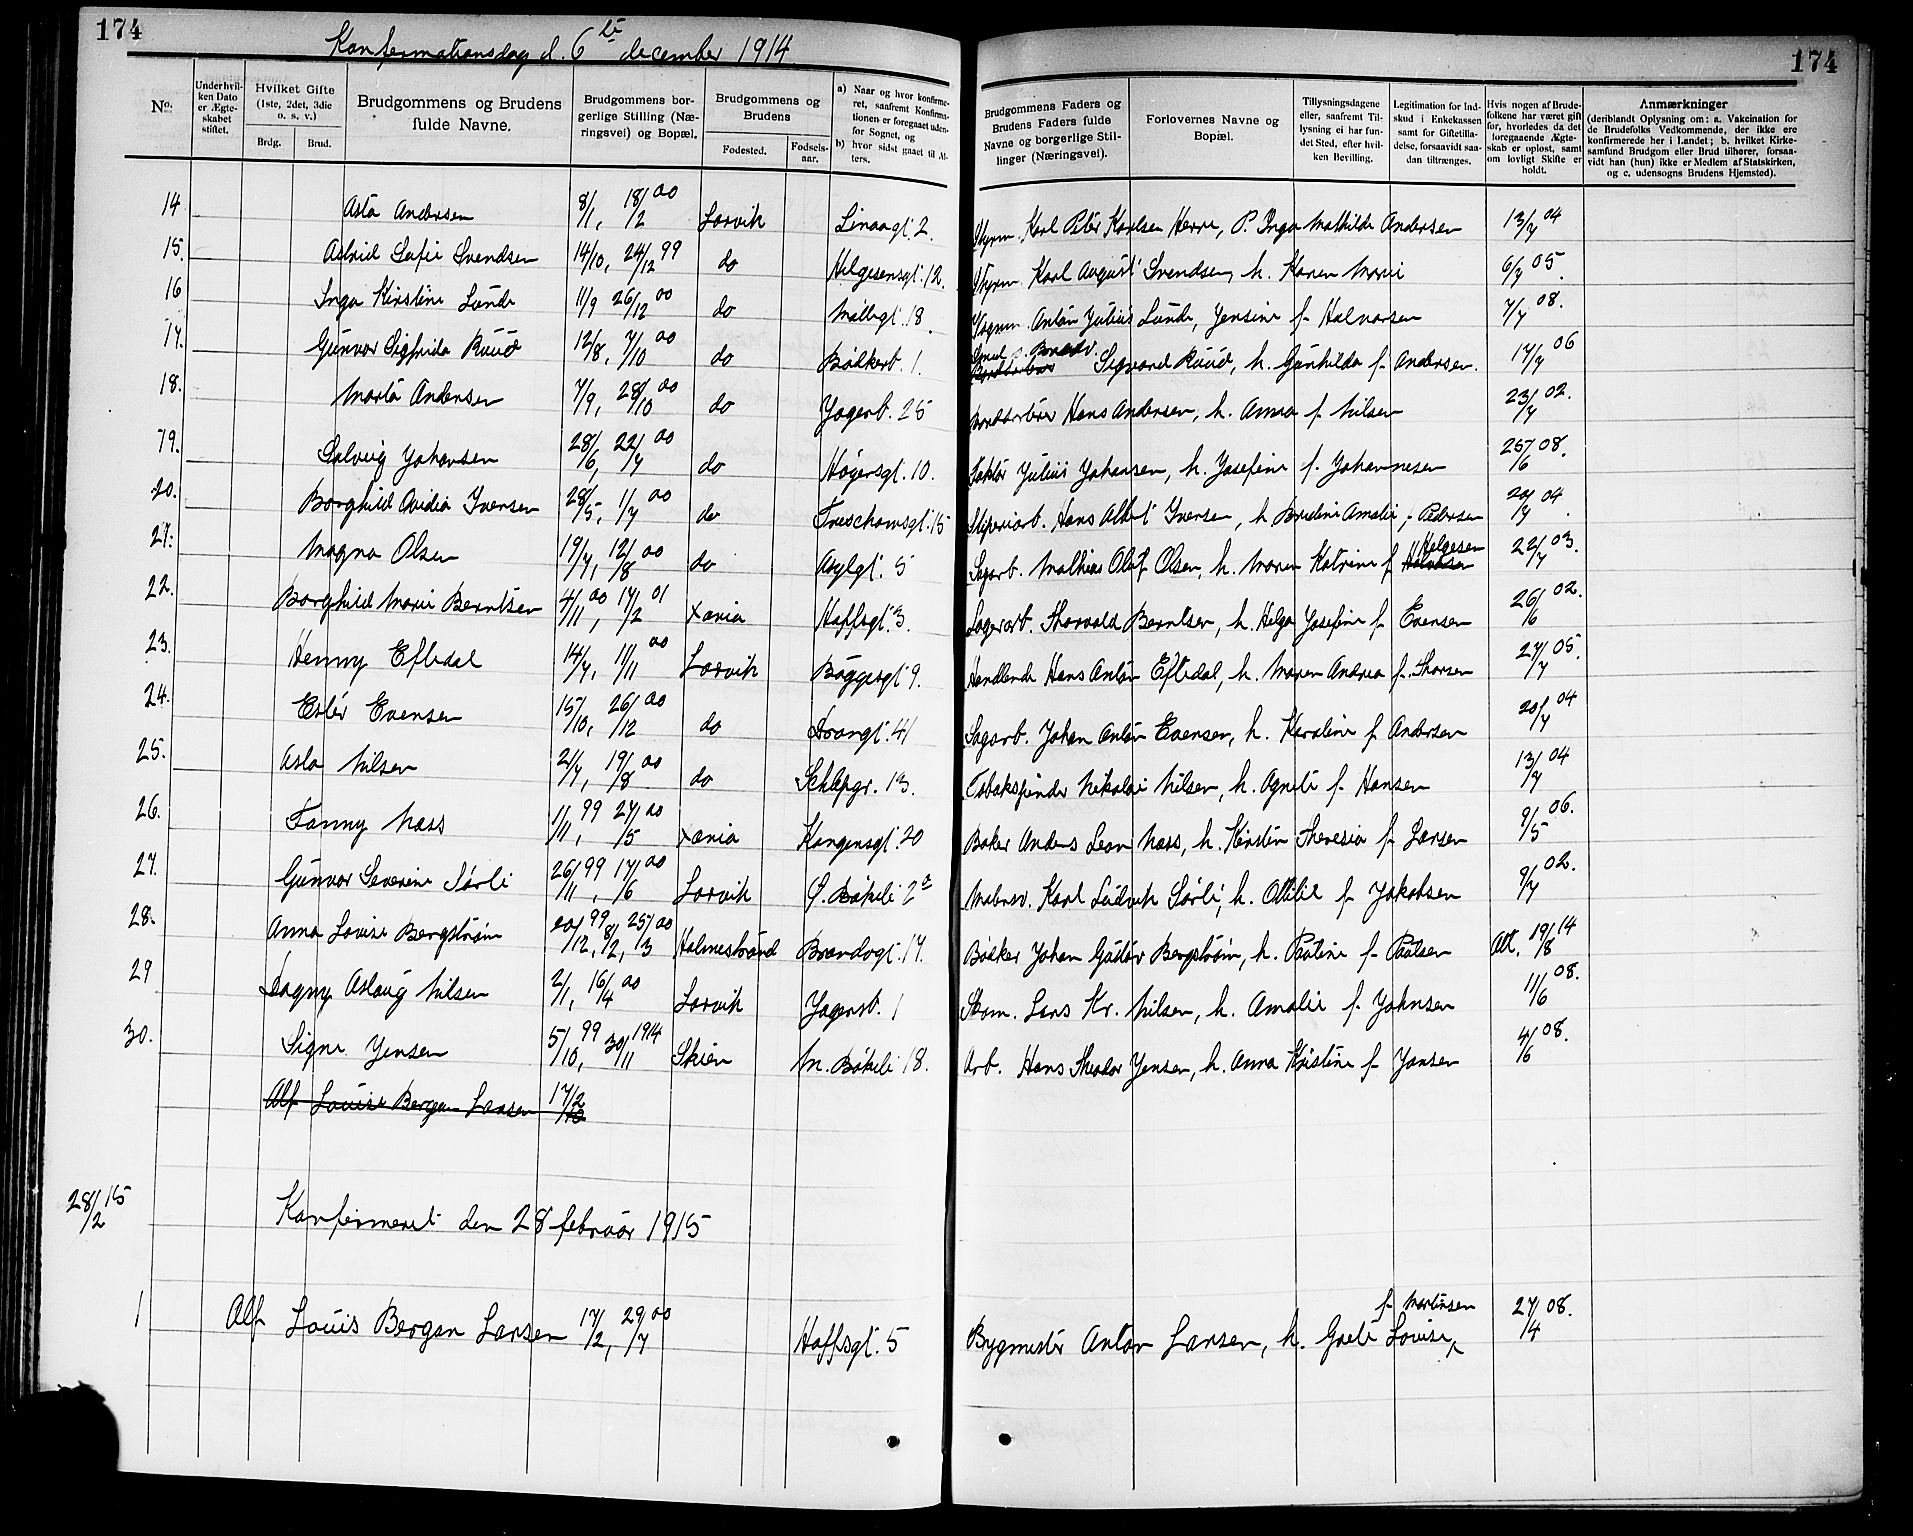 174
Konfirmationsdag d. 6te december 1914
174
No.
Under hvilken Dato er Ægteskabet stiftet.
Hvilket Gifte (1ste, 2det, 3die o. s. v.)
Brdg. Brud.
Brudgommens og Brudens fulde Navne.
Brudgommens borgerlige Stilling (Næringsvei) og Bopæl.
Brudgommens og Brudens
Fødested. Fødselsaar.
a) Naar og hvor konfirmeret, saafremt Konfirmationen er foregaaet udenfor Sognet, og
b) hvor sidst gaaet til Alters.
Brudgommens Faders og Brudens Faders fulde Navne og borgerlige Stillinger (Næringsvei).
Forlovernes Navne og Bopæl.
Tillysningsdagene eller, saafremt Tillysning ei har fundet Sted, efter hvilken Bevilling.
Legitimation for Indskud i Enkekassen samt for Giftetilladelse, forsaavidt saadan tiltrænges.
Hvis nogen af Brudefolkene har været gift før, hvorledes da det foregaaende Ægteskab er opløst, samt om lovligt Skifte er holdt.
Anmærkninger
(deriblandt Oplysning om: a. Vakcination for de Brudefolks Vedkommende, der ikke ere konfirmerede her i Landet; b. hvilket Kirkesamfund Brudgom eller Brud tilhører, forsaavidt han (hun) ikke er Medlem af Statskirken, og c. udensogns Brudens Hjemsted).
14 Asta Andersen 8/1, 18/2 00 Larvik Linaagt. 2. Styrm. Karl Peter Karlsen Herre, P. Inga Mathilde Andersen 13/7 04
15. Astrid Sofie Svendsen 14/10, 24/12 99 do Helgesensgt. 12. Styrm. Karl August Svendsen, h. Karen Marie 6/7 05.
16 Inga Kirstine Lunde 11/9 26/12 00 do Møllegt. 18. Vognm. Anton Julius Lunde, Jensine f. Halvorsen 7/7 08.
17. Gunvor Sigfrida Ruud 12/8, 7/10 00 do Bøkkerb. 1. Sigvard Ruud, h. Gunhilda f. Andersen. 17/7 06
18. Marta Andersen 7/9, 28/10 00 do Jagerb. 25 Bordsortør Hans Andersen, h. Anna f. Nilsen 23/7 02.
19. Solveig Johansen 28/6, 22/7 00 do Høgersgt. 10. Faktor Julius Johansen, h. Josefine f. Johannesen 25/6 08.
20. Borghild Ovidia Iversen 28/5, 1/7 00 do Treschowsgt. 15 Sliperiarb. Hans Albert Iversen, h Brudine Amalie f. Pedersen 20/7 04.
21. Magna Olsen 19/7, 12/8 00 do Asylgt. 5 Sagarb. Mathias Olaf Olsen, h. Maren Katrine f Helgesen 22/7 03.
22. Borghild Marie Berntsen 4/11 00, 17/2 01 Xania Hoffsgt. 3. Lagerarb. Thorvald Berntsen, h. Helga Josefine f Evensen 26/6 02.
23. Henny Eftedal 14/7, 11/11 00 Larvik Bøggesgt 9. Handlende Hans Anton Eftedal, h. Maren Andrea f. Thorsen 27/7 05.
24. Ester Evensen 15/10, 26/12 00 do Strangt. 41 Sagarb. Johan Anton Evensen, h. Karoline f Andersen 20/7 04
25. Asta Nilsen 2/7, 19/8 00 do Schløpgr. 13. Tobakspinder Nikolai Nilsen, h. Agnete f. Hansen 13/7 04
26. Fanny Næss 1/11 99, 27/5 00 Xania Kongensgt. 20 Baker Anders Leon Næss, h. Kirstin Theresia f Larsen 9/5 06.
27. Gunvor Severine Sørli 26/11 99, 17/6 00 Larvik Ø. Bøkeli 2a Malersv. Karl Ludvik Sørli, h. Ottilie f Jakobsen 9/7 02.
28. Anna Lovise Bergstrøm 20/12 99, 8/2, 25/3 00 Holmestrand Brandvgt. 17. Bøkker Johan Gustav Bergstrøm, h. Pauline f Paulsen Att. 19/8 14
29 Dagny Aslaug Nilsen 2/1, 16/4 00 Larvik Jagersb. 1 Skom. Lars Kr. Nilsen, h. Amalie f Johnsen 11/6 08.
30. Signe Jensen 5/10 99, 30/11 1914 Skien M. Bøkeli 18. Arb. Hans Theodor Jensen, h. Anna Kristine f Jansen 4/6 08.
Alf Louise Bergan Larsen 17/2
28/2 15
Konfirmeret den 28 februar 1915
1 Alf Louis Bergan Larsen 17/2, 29/7 00 Hoffsgt. 5 Bygmester Anton Larsen, h. Grete Lovise, f Martinsen 27/4 08.